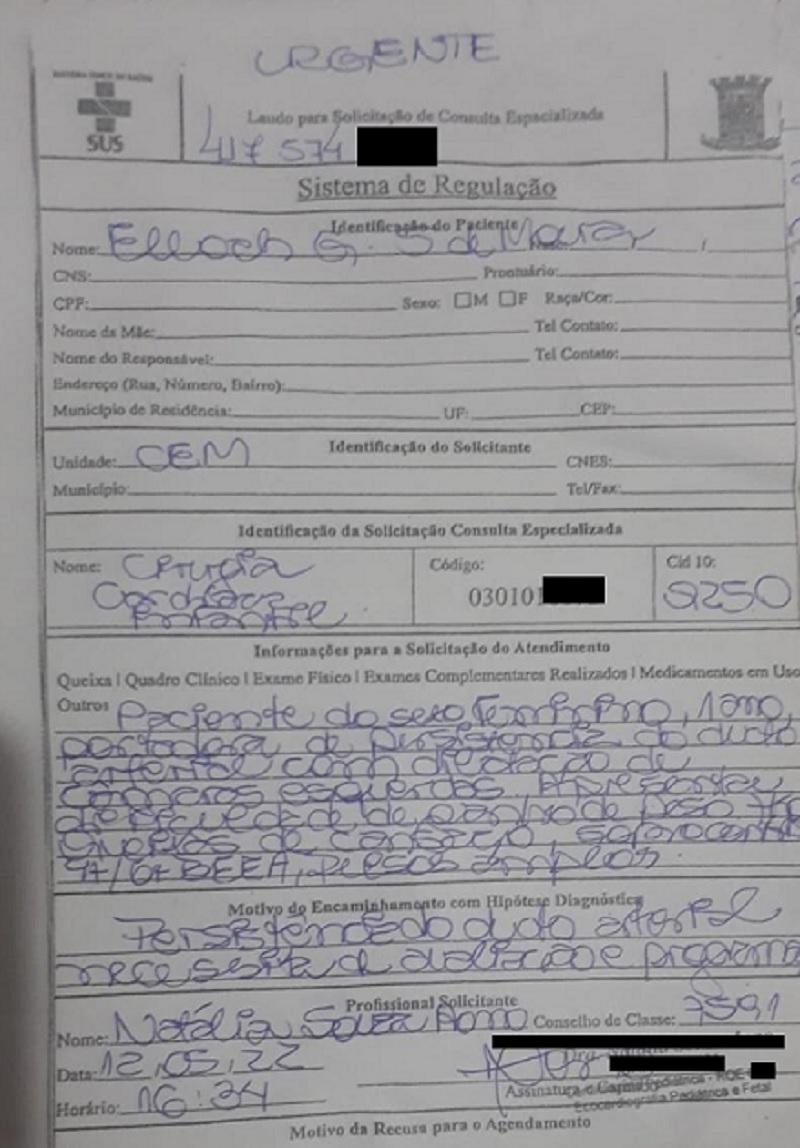 URGENTE
SUS
Laudo para Solicitação de Consulta Espacializada
417 574
Sistema de Regulação
Identificação do Paciente
Nome: G. S de
CNS: Prontuário:
CPF: Sexo: M F Raça/Cor:
Nome da Mãe: Tel Contato:
Nome do Responsável: Tel Contato:
Endereço (Rua, Número, Bairro):
Município de Residência: UF: CEP:
Identificação do Solicitante
Unidade: CEM CNES:
Município: Tel/Fax:
Identificação da Solicitação Consulta Especializada
Nome: Cirurgia Código: Cid 10:
Cardíaca 03010 Q250
Infantil
Informações para a Solicitação do Atendimento
Queixa | Quadro Clínico | Exame Físico | Exames Complementares Realizados | Medicamentos em Uso
Outros Paciente do sexo feminino, 1 ano,
portadora de persistencia do ducto
arterial com dilatação de
câmaras esquerdas. Apresenta
dificuldade de ganho de peso
de cansaço,
BEEA, pulsos amplos.
Motivo do Encaminhamento com Hipótese Diagnóstica
Persistência do ducto arterial
necessita d avaliação e
Profissional Solicitante
Nome: Natália Souza Conselho de Classe: 7591
Data: 12,05,22
Dra.
Assinatura e Carimbo Pediátrica - RQE
Horário: 16:34
Ecocardiografia Pediátrica e Fetal
Motivo da Recusa para o Agendamento